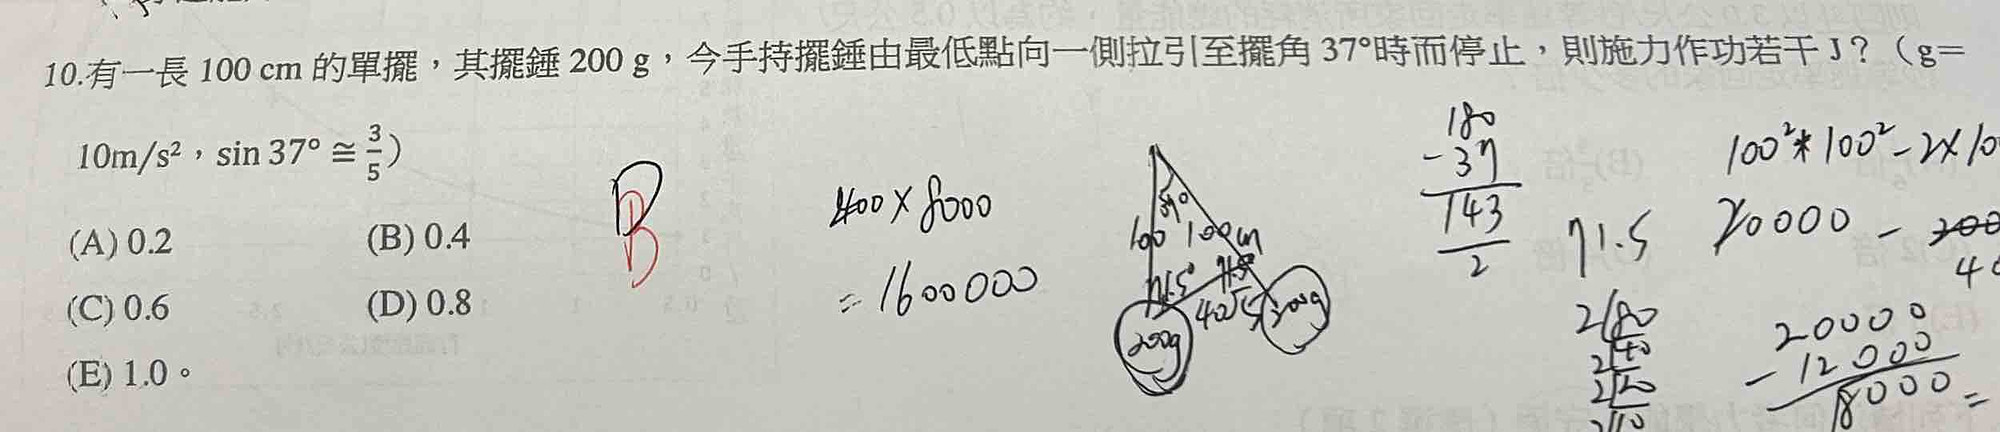 10.有一長 100 cm 的單擺，其擺錘 200 g，今手持擺錘由最低點向一側拉引至擺角 37°時而停止，則施力作功若干 J？（g＝
10m/s²，sin 37° ≅ 3/5）
(A) 0.2 (B) 0.4
(C) 0.6 (D) 0.8
(E) 1.0。
B
B
400 × 8000
= 1600000
37°
100 100cm
71.5°
200g
180
- 37
143
2
71.5
100² * 100² - 2 × 10
20000 -
2 80
2 40
2 20
10
20000
- 12000
8000 =